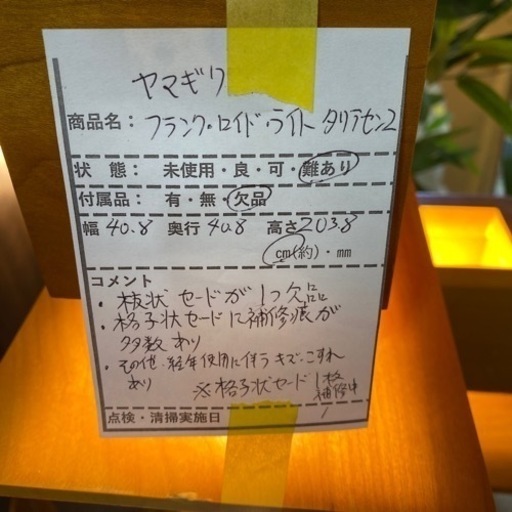 ヤマギワ
商品名: フランク・ロイド・ライト タリアセン2
状 態: 未使用・良・可・難あり
付属品: 有・無・欠品
幅 40.8 奥行 40.8 高さ 203.8
cm(約)・mm
コメント
・板状 セードが 1つ欠品
・格子状セードに補修痕が
多数あり
・その他、経年使用に伴うキズ、こすれ
あり
※格子状セード1格
補修中
点検・清掃実施日 /